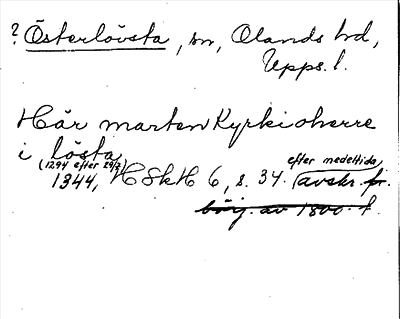 ? Österlövsta, sn, Olands hd,
Upps. l.
Här marten Kyrkioherre
i lösta
(1294 efter 29/7)
1344, HSkH 6, s. 34. efter medeltida
avskr. fr.
börj. av 1800-t.